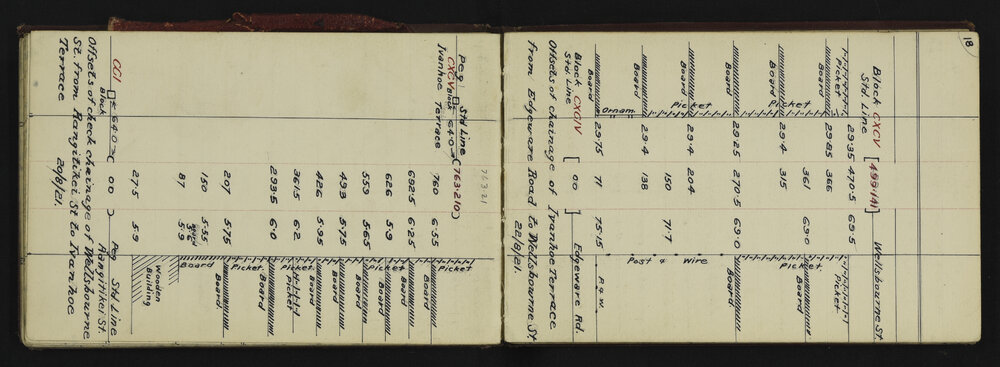 18
Block CXCV [499.141] Wellsbourne St.
Std Line
29.35 470.5 69.5
Picket Picket
29.85 366
Board 361 69.0
Picket Picket
29.4 315
Board
29.25 270.5 69.0
Board Board
Picket
29.4 204
Board
150 71.7
29.4 138
Board Post & Wire
Ornam.
29.75 71 75.15
Board R.o.w.
Block CXCIV [00] Edgeware Rd.
Std. Line
Offsets of chainage of Ivanhoe Terrace
from Edgeware Road to Wellsbourne St
22/8/21.
763.21
Peg Std Line (763.210)
CXCV Block 640
Ivanhoe Terrace
760 6.55
Picket
692.5 6.25
Board
626 5.9
Picket
553 5.65
Board
493 5.75
Board
426 5.95
Board
361.5 6.2
Picket
Picket
293.5 6.0
Board
Picket
207 5.75
Board
150 5.55
5.6
Board
87 5.9
Wooden
Building
27.5 5.9
CCI 640 (00) Peg Std Line
Block Rangitikei St.
Offsets of check chainage of Wellsbourne
St. from Rangitikei St to Ivanhoe
Terrace 20/8/21.